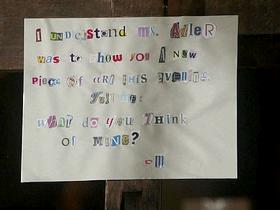 I understand ms. Adler
was to show you A new
piece of art this evening.
Tell me:
what do you Think
of MINE?
-m